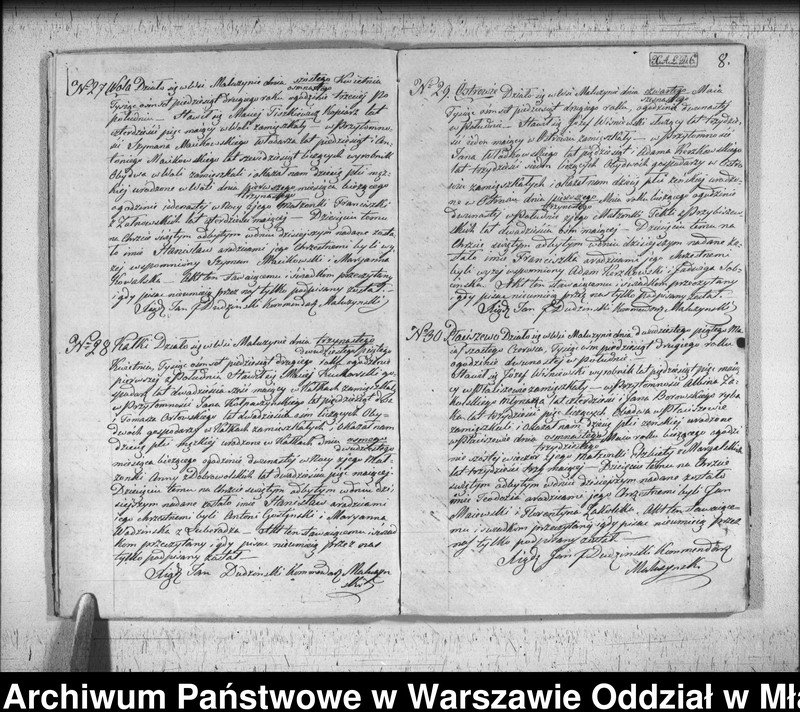 Nº 27 Wola Działo się w Wsi Maluzynie dnia szóstego Kwietnia
osmnastego
Tysiąc ośmset piędziesiąt drugiego roku ogodzinie trzeciej po
południu – Stawił się Maciej lat
czterdzieści pięć mający w Woli zamięszkały – w przytomno-
ści Szymona Maikowskiego Włodarza lat piędziesiąt i An-
toniego Maikowskiego lat sześdziesiąt liczących wyrobnik
Obydwa w Woli zamięszkali i okazał nam dziecię płci męz-
kiej urodzone w Woli dnia pierwszego miesiąca bieżącego
trzynastego
ogodzinie iedenasty w Nocy z jego Małżonki Franciszki
z lat czterdzieści mającej – Dziecięciu temu
na Chrzcie świętym odbytym w dniu dzisiejszym nadane zosta-
ło imie Stanisław a rodzicami jego Chrzestnemi byli wy-
żej wspomniony Szymon Maikowski i Maryanna
Kowalska – Akt ten stawaiącemu i świadkom przeczytany
i gdy pisać nieumieią przez nas tylko podpisany został –
Xiądz Jan Dudzinski Kommendarz Maluzynski
Nº 28 Kątki Działo się w Wsi Maluzynie dnia trzynastego
dwudziestego piątego
Kwietnia, Tysiąc ośmset piędziesiąt drugiego roku ogodzinie
pierwszej z południa Stawił się Maciej Kucharski go-
spodarz lat dwadzieścia sześć mający w Kątkach zamięszkały
w Przytomności Jana lat piędziesiąt i
Tomasza Ostrowskiego lat dwadzieścia osm liczących Oby-
dwóch gospodarzy w Kątkach zamięszkałych i okazał nam
dziecię płci męzkiej urodzone w Kątkach dnia osmego
dwudziestego
miesiąca bieżącego ogodzinie dwunasty w Nocy z jego Mał-
żonki Anny z Dobrowolskich lat dwadzieścia pięć mającej
Dziecięciu temu na Chrzcie świętym odbytym w dniu dzi-
siejszym nadane zostało imie Stanisław a rodzicami
jego chrzestnemi byli Antoni Gostynski i Maryanna
z – Akt ten stawaiącemu i świad-
kom przeczytany i gdy pisać nieumieią przez nas
tylko podpisany został
Xiądz Jan Dudzinski Kommendarz Maluzyn-
ski
K.A.L.D.C. 8.
Nº 29 Ostrowie Działo się w Wsi Maluzynie dnia czwartego Maia
szesnastego
Tysiąc ośmset piędziesiąt drugiego roku, ogodzinie dwunasty
w Południe – Stawił się Józef Wisniewski służący lat trzydzie-
ści ieden mający w zamięszkały – w przytomności
Jana lat piędziesiąt i Adama Koszkowskiego
lat trzydzieści siedm liczących Obydwóch gospodarzy w
zamięszkałych i okazał nam dziecię płci żenskiej urodzo-
ne w dnia pierwszego Maia roku bieżącego ogodzinie
trzynastego
dwunasty w południe z jego Małżonki Tekli z
lat dwadzieścia osm mającej – Dziecięciu temu na
Chrzcie świętym odbytym w dniu dzisiejszym nadane zo-
stało imie Franciszka a rodzicami jego chrzestnemi
byli wyżej wspomniony Adam Koszkowski i Jadwiga
– Akt ten stawaiącemu i świadkom przeczytany
i gdy pisać nieumieią przez nas tylko podpisany został –
Xiądz Jan Dudzinski Kommendarz Maluzynski
Nº 30 Działo się w Wsi Maluzynie dnia dwudziestego piątego Ma-
ia szóstego Czerwca, Tysiąc osm piędziesiąt drugiego roku
ogodzinie dwunasty w południe –
Stawił się Józef Wisniewski wyrobnik lat piędziesiąt pięć maią-
cy w zamięszkały – w przytomności Albina Za-
młynarza lat czterdzieści i Jana Borowskiego ryba-
ka lat trzydzieści pięć liczących Obadwa w
zamięszkali i Okazał nam dziecię płci żenskiej urodzone
w dnia osmnastego Maia roku bieżącego ogodzi-
trzydziestego
nie szóstej wieczor z jego Małżonki
lat trzydzieści trzy mającej – Dziecięciu temu na Chrzcie
świętym odbytym w dniu dzisiejszym nadane zostało
imie Teodozia a rodzicami jego Chrzestnemi byli Jan
Maiewski i Florentyna – Akt ten stawaiące-
mu i swiadkom przeczytany i gdy pisać nieumieią przez
nas tylko podpisany został –
Xiądz Jan Dudzinski Kommendarz
Maluzynski
Archiwum Państwowe w Warszawie Oddział w Mła